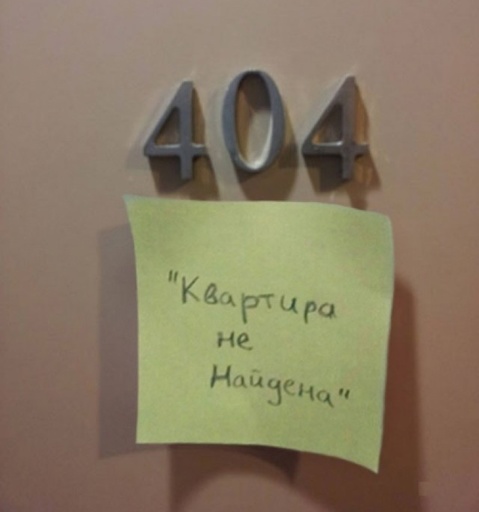 404
"Квартира
не
Найдена"